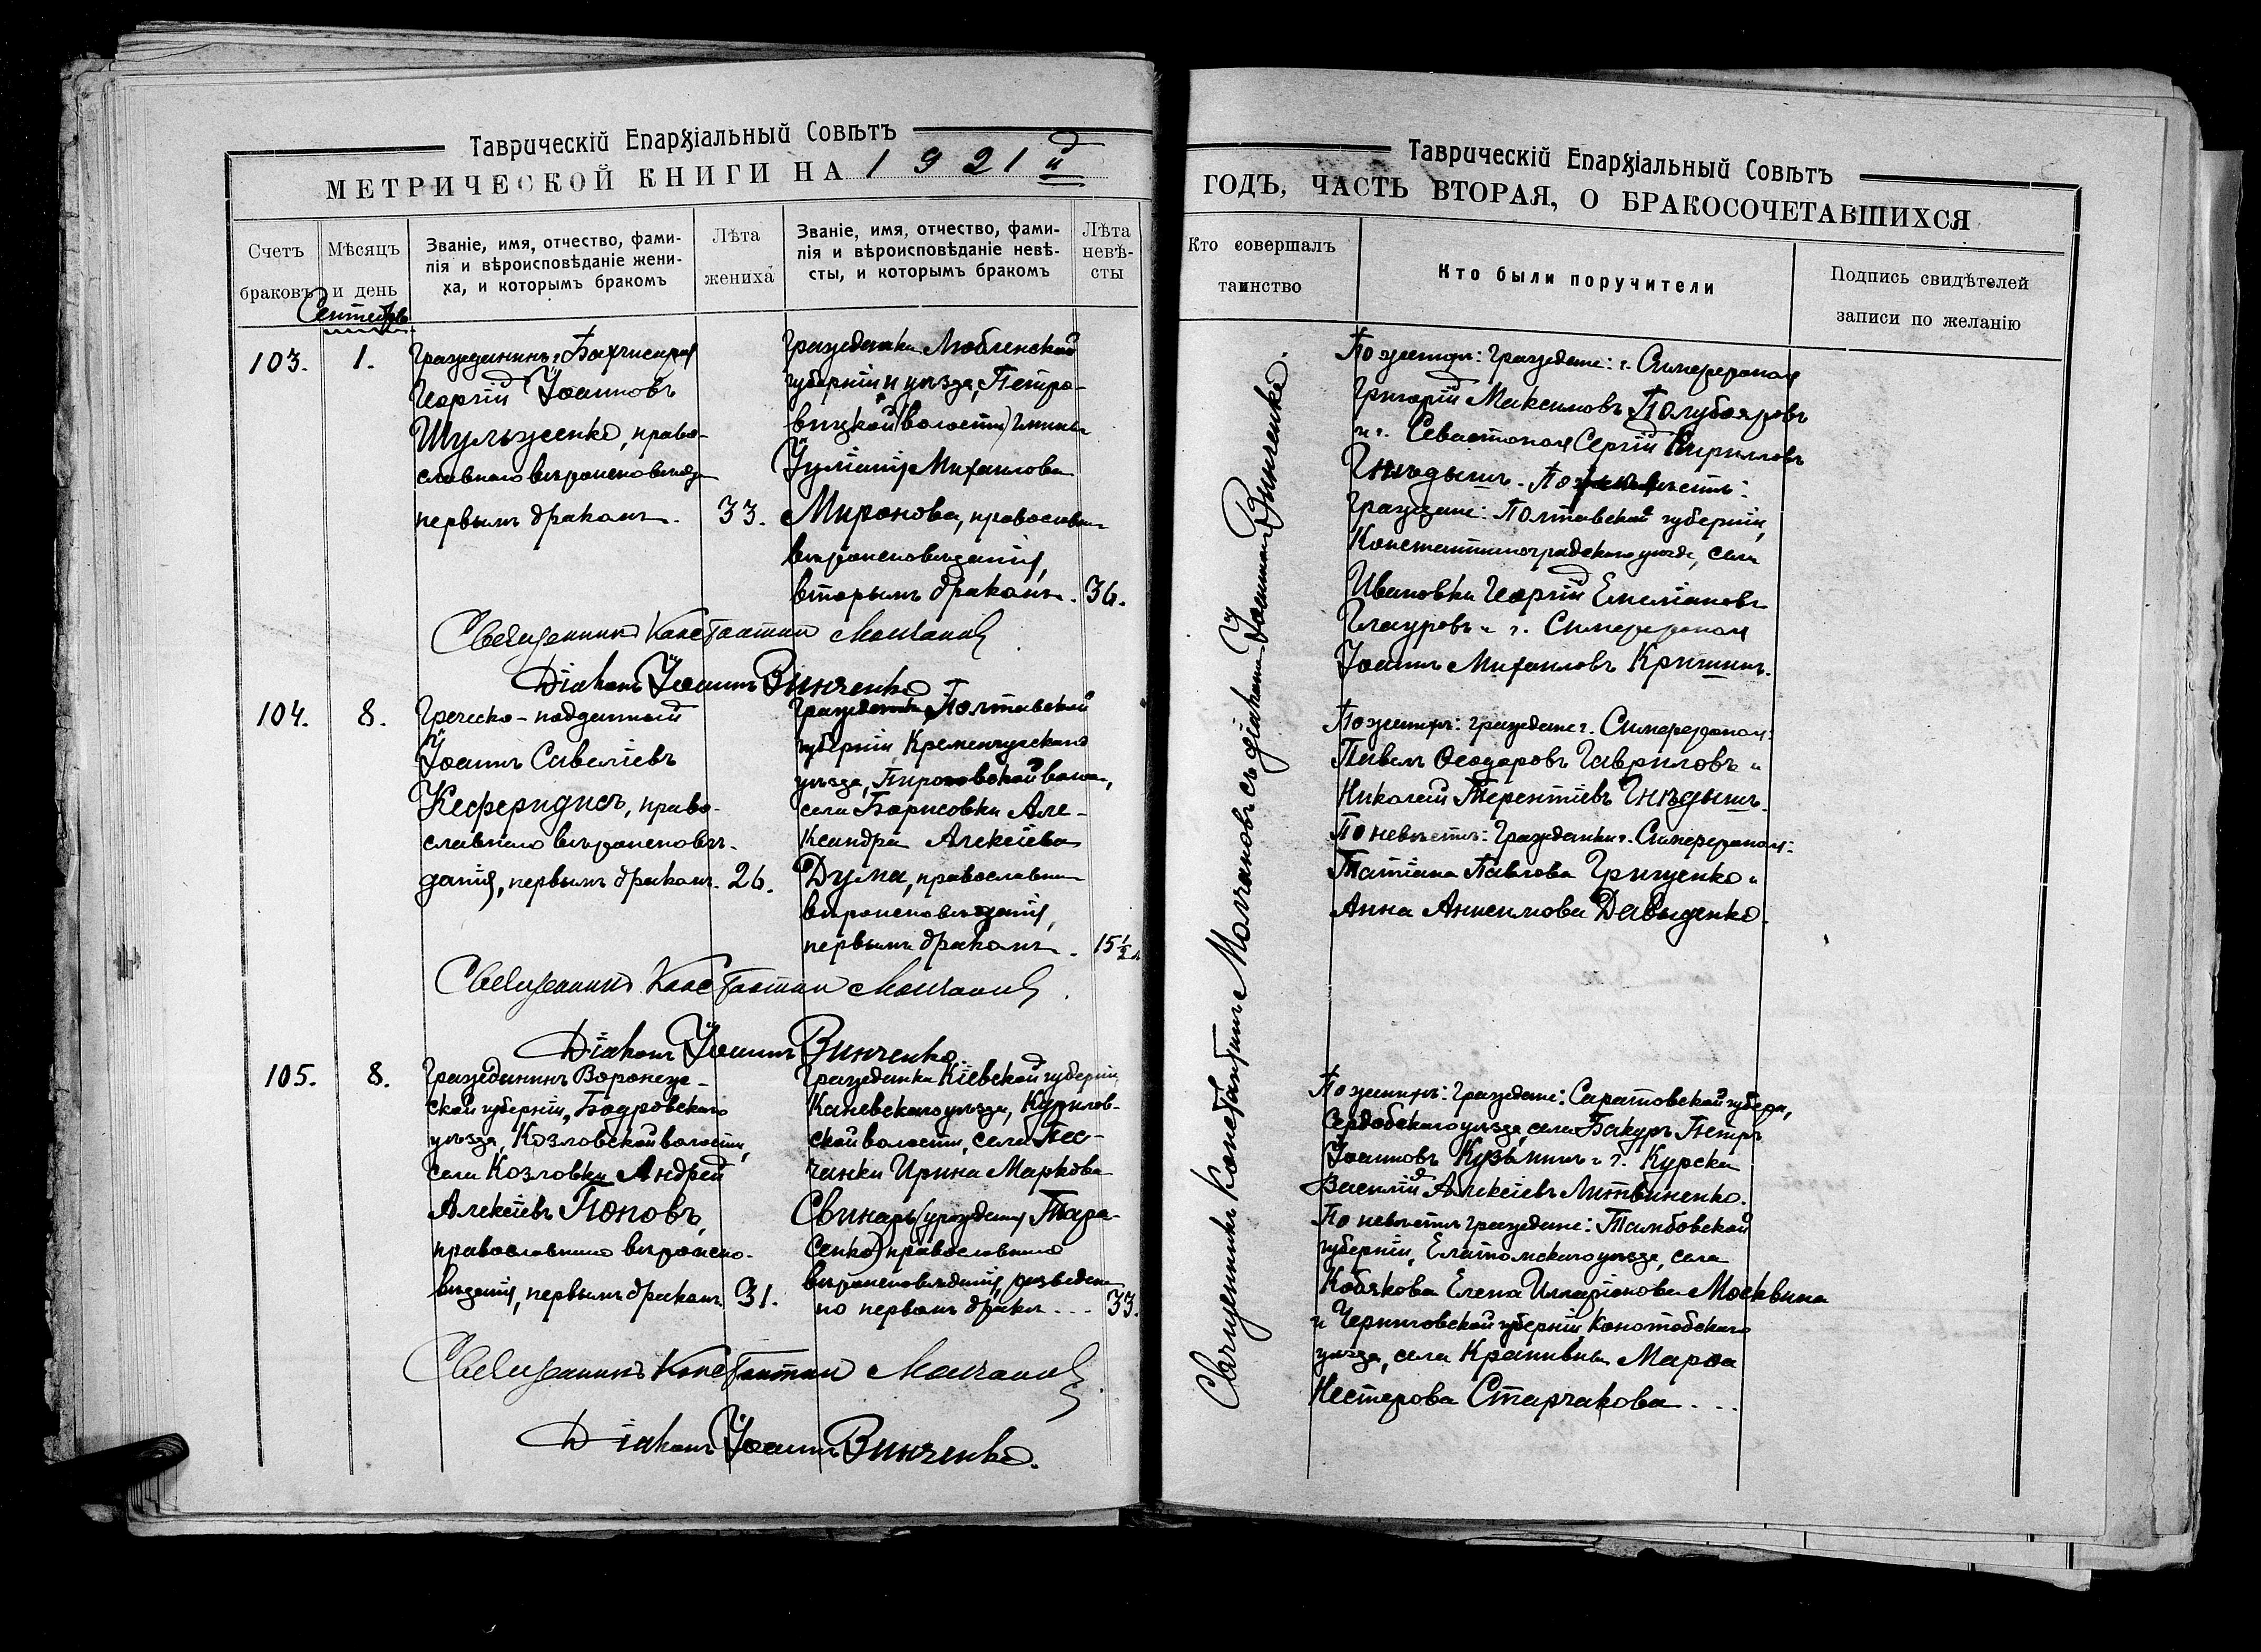 Таврическій Епархіальный Совѣтъ
МЕТРИЧЕСКОЙ КНИГИ НА 1921й
Счетъ браковъ
Мѣсяцъ и день
Званіе, имя, отчество, фами-
лія и вѣроисповѣданіе жени-
ха, и которымъ бракомъ
Лѣта жениха
Званіе, имя, отчество, фами-
лія и вѣроисповѣданіе невѣ-
сты, и которымъ бракомъ
Лѣта
невѣ-
сты
Сентябрь
103.
1.
Гражданинъ г. Бахчисарая
Георгій Іоанновъ
Шульженко, право-
славнаго вѣроисповѣданія
первымъ бракомъ.
33.
Гражданка Люблинской
губерніи и уѣзда, Петро-
вицкой (волости) гмины
Іуліанія Михаилова
Миронова, православн.
вѣроисповѣданія,
вторымъ бракомъ.
36.
Священникъ Константинъ Молчановъ
Діаконъ Іоаннъ Винченко
104.
8.
Греческо-подданный
Іоаннъ Савеліевъ
Кеферидисъ, право-
славнаго вѣроисповѣ-
данія, первымъ бракомъ.
26.
Гражданка Полтавской
губерніи Кременчугскаго
уѣзда, волос.,
села Борисовки Але-
ксандра Алексіева
Дума, православна
вѣроисповѣданія,
первымъ бракомъ.
15½ л
Священникъ Константинъ Молчановъ
Діаконъ Іоаннъ Винченко
105.
8.
Гражданинъ Воронеж-
ской губерніи, Бобровскаго
уѣзда, Козловской волости,
села Козловки Андрей
Алексіевъ Поповъ,
православнаго вѣроиспо-
вѣданія, первымъ бракомъ
31.
Гражданка Кіевской губерніи
Каневскаго уѣзда, Курилов-
ской волости, села Пес-
чанки Ирина Маркова
Свинарь (урожденная Тара-
сенко) православнаго
вѣроисповѣданія, разведена
по первомъ бракѣ...
33.
Священникъ Константинъ Молчановъ
Діаконъ Іоаннъ Винченко.
Таврическій Епархіальный Совѣтъ
ГОДЪ, ЧАСТЬ ВТОРАЯ, О БРАКОСОЧЕТАВШИХСЯ
Кто совершалъ
таинство
Кто были поручители
Подпись свидѣтелей
записи по желанію
Священникъ Константинъ Молчановъ съ діакономъ Іоанномъ Винченко.
По женихѣ: граждане: г. Симферополя
Григорій Максимовъ Полубояровъ
и г. Севастополя Сергій Кирилловъ
Гнѣдышъ. По невѣстѣ:
Граждане: Полтавской губерніи,
Константиноградскаго уѣзда, села
Ивановки Георгій Емеліановъ
Глауровъ и г. Симферополя
Іоаннъ Михаиловъ Кришинъ.
По женихѣ: граждане г. Симферополя:
Павелъ Ѳеодоровъ Гавриловъ и
Николай Терентіевъ Гнѣдышъ.
По невѣстѣ: Гражданки г. Симферополя:
Татіана Павлова Грищенко и
Анна Анисимова Давыденко.
По женихѣ: граждане: Саратовской губерн.,
Сердобскаго уѣзда, села Бакуръ Петръ
Іоанновъ Кузьминъ и г. Курска
Василій Алексіевъ Литвиненко.
По невѣстѣ граждане: Тамбовской
губерніи, Елатомскаго уѣзда, села
Кобякова Елена Илларіонова Москвина
и Черниговской губерніи Конотобскаго
уѣзда, села Крапивна Марѳа
Нестерова Старчакова...